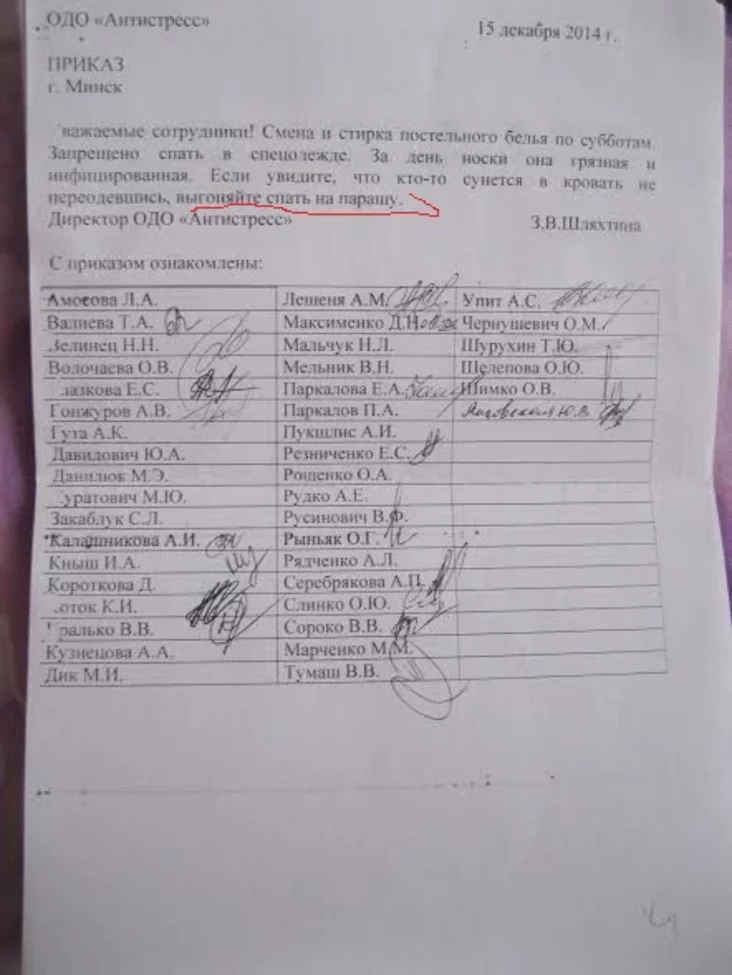 ОДО «Антистресс»
15 декабря 2014 г.
ПРИКАЗ
г. Минск
важаемые сотрудники! Смена и стирка постельного белья по субботам.
Запрещено спать в спецодежде. За день носки она грязная и
инфицированная. Если увидите, что кто-то сунется в кровать не
переодевшись, выгоняйте спать на парашу.
Директор ОДО «Антистресс» З.В.Шляхтина
С приказом ознакомлены:
Амосова Л.А. Лешеня А.М. Упит А.С.
Валиева Т.А. Максименко Д.Н. Чернушевич О.М.
Зелинец Н.Н. Мальчук Н.Л. Шурухин Т.Ю.
Волочаева О.В. Мельник В.Н. Щелепова О.Ю.
лазкова Е.С. Паркалова Е.А. Шимко О.В.
Гонжуров А.В. Паркалов П.А. Янговская Ю.В
Гута А.К. Пукшлис А.И.
Давидович Ю.А. Резниченко Е.С.
Данилюк М.Э. Рощенко О.А.
уратович М.Ю. Рудко А.Е.
Закаблук С.Л. Русинович В.Ф.
Калашникова А.И. Рыньяк О.Г.
Кныш И.А. Рядченко А.Л.
Короткова Д. Серебрякова А.П.
оток К.И. Слинко О.Ю.
ралько В.В. Сороко В.В.
Кузнецова А.А. Марченко М.М.
Дик М.И. Тумаш В.В.